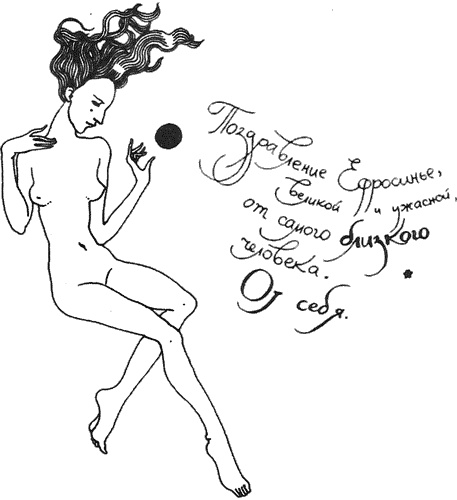 Поздравление Ефросинье,
великой и ужасной,
от самого близкого
человека.
От себя.